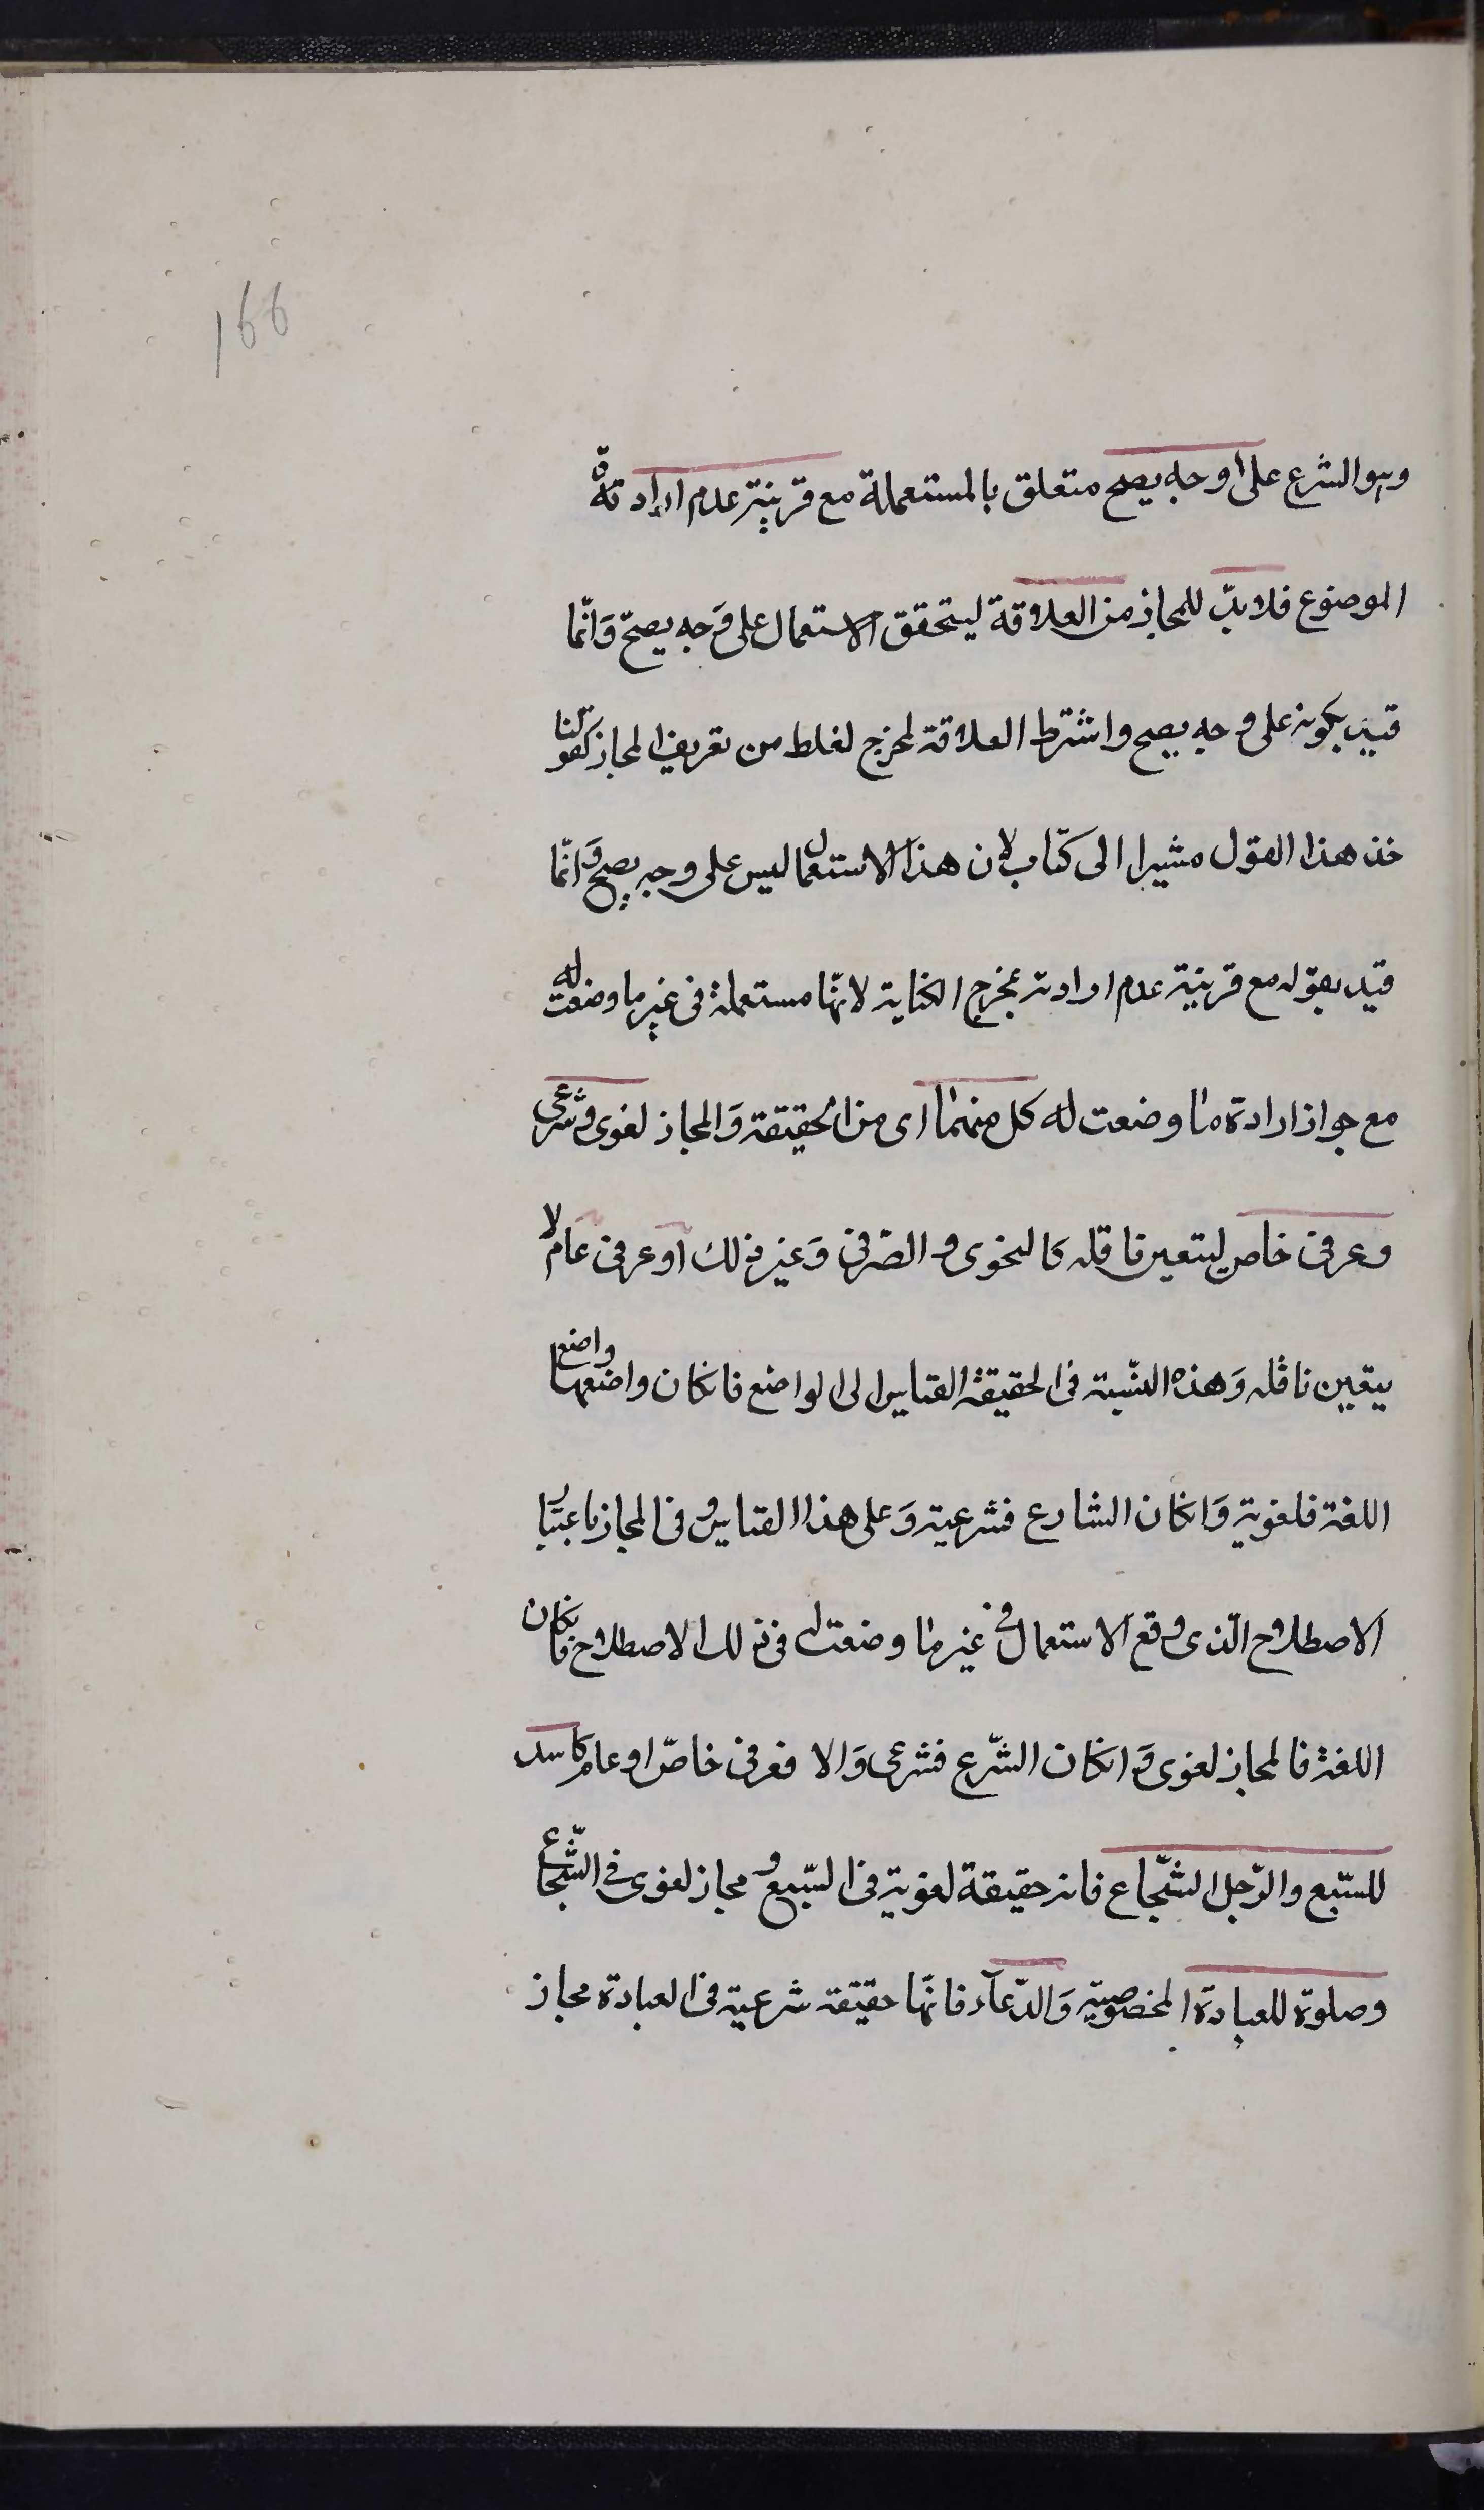 166
وهو الشرع على وجه يصح متعلق بالمستعملة مع قرينة عدم ارادته
الموضوع فلا بدّ للمجاز من العلاقة ليتحقق الاستعمال على وَجه يصحّ وَانّما
قيد بكونه على وجه يصح واشترط العلاقة ليخرج الغلط من تعريف المجاز كقولنا
خذ هذا القول مشيرا الى كتاب لان هذا الاستعمال ليس على وجه يصح وَانّما
قيد بقوله مع قرينة عدم ارادته ليخرج الكناية لانّها مستعملة فى غير ما وضعت له
مع جواز ارادة ما وضعت له كل منهما اى من الحقيقة وَالمجاز لغوى وشرعى
وعرفى خاص ليتعين ناقله كالنحوى والصّرفى وَغير ذلك اَو عرفى عام لا
يتعين ناقله وَهذه النّسبة فى الحقيقة القياس الى الواضع فانكان واضعها واضع
اللغة فلغوية وَانكان الشارع فشرعية وَعلى هذا القياس وفى المجاز باعتبار
الاصطلاح الّذى وقع الاستعمال فى غير ما وضعت له فى ذلك الاصطلاح فانكان
اللغة فالمجاز لغوى وَانكان الشّرع فشرعى وَالا فعرفى خاصّ او عام كاسد
للسّبع والرّجل الشّجاع فانه حقيقة لغوية فى السّبع ومجاز لغوى فى الشّجاع
وصلوة للعبادة المخصوصية وَالدّعآء فانّها حقيقة شرعية فى العبادة مجاز